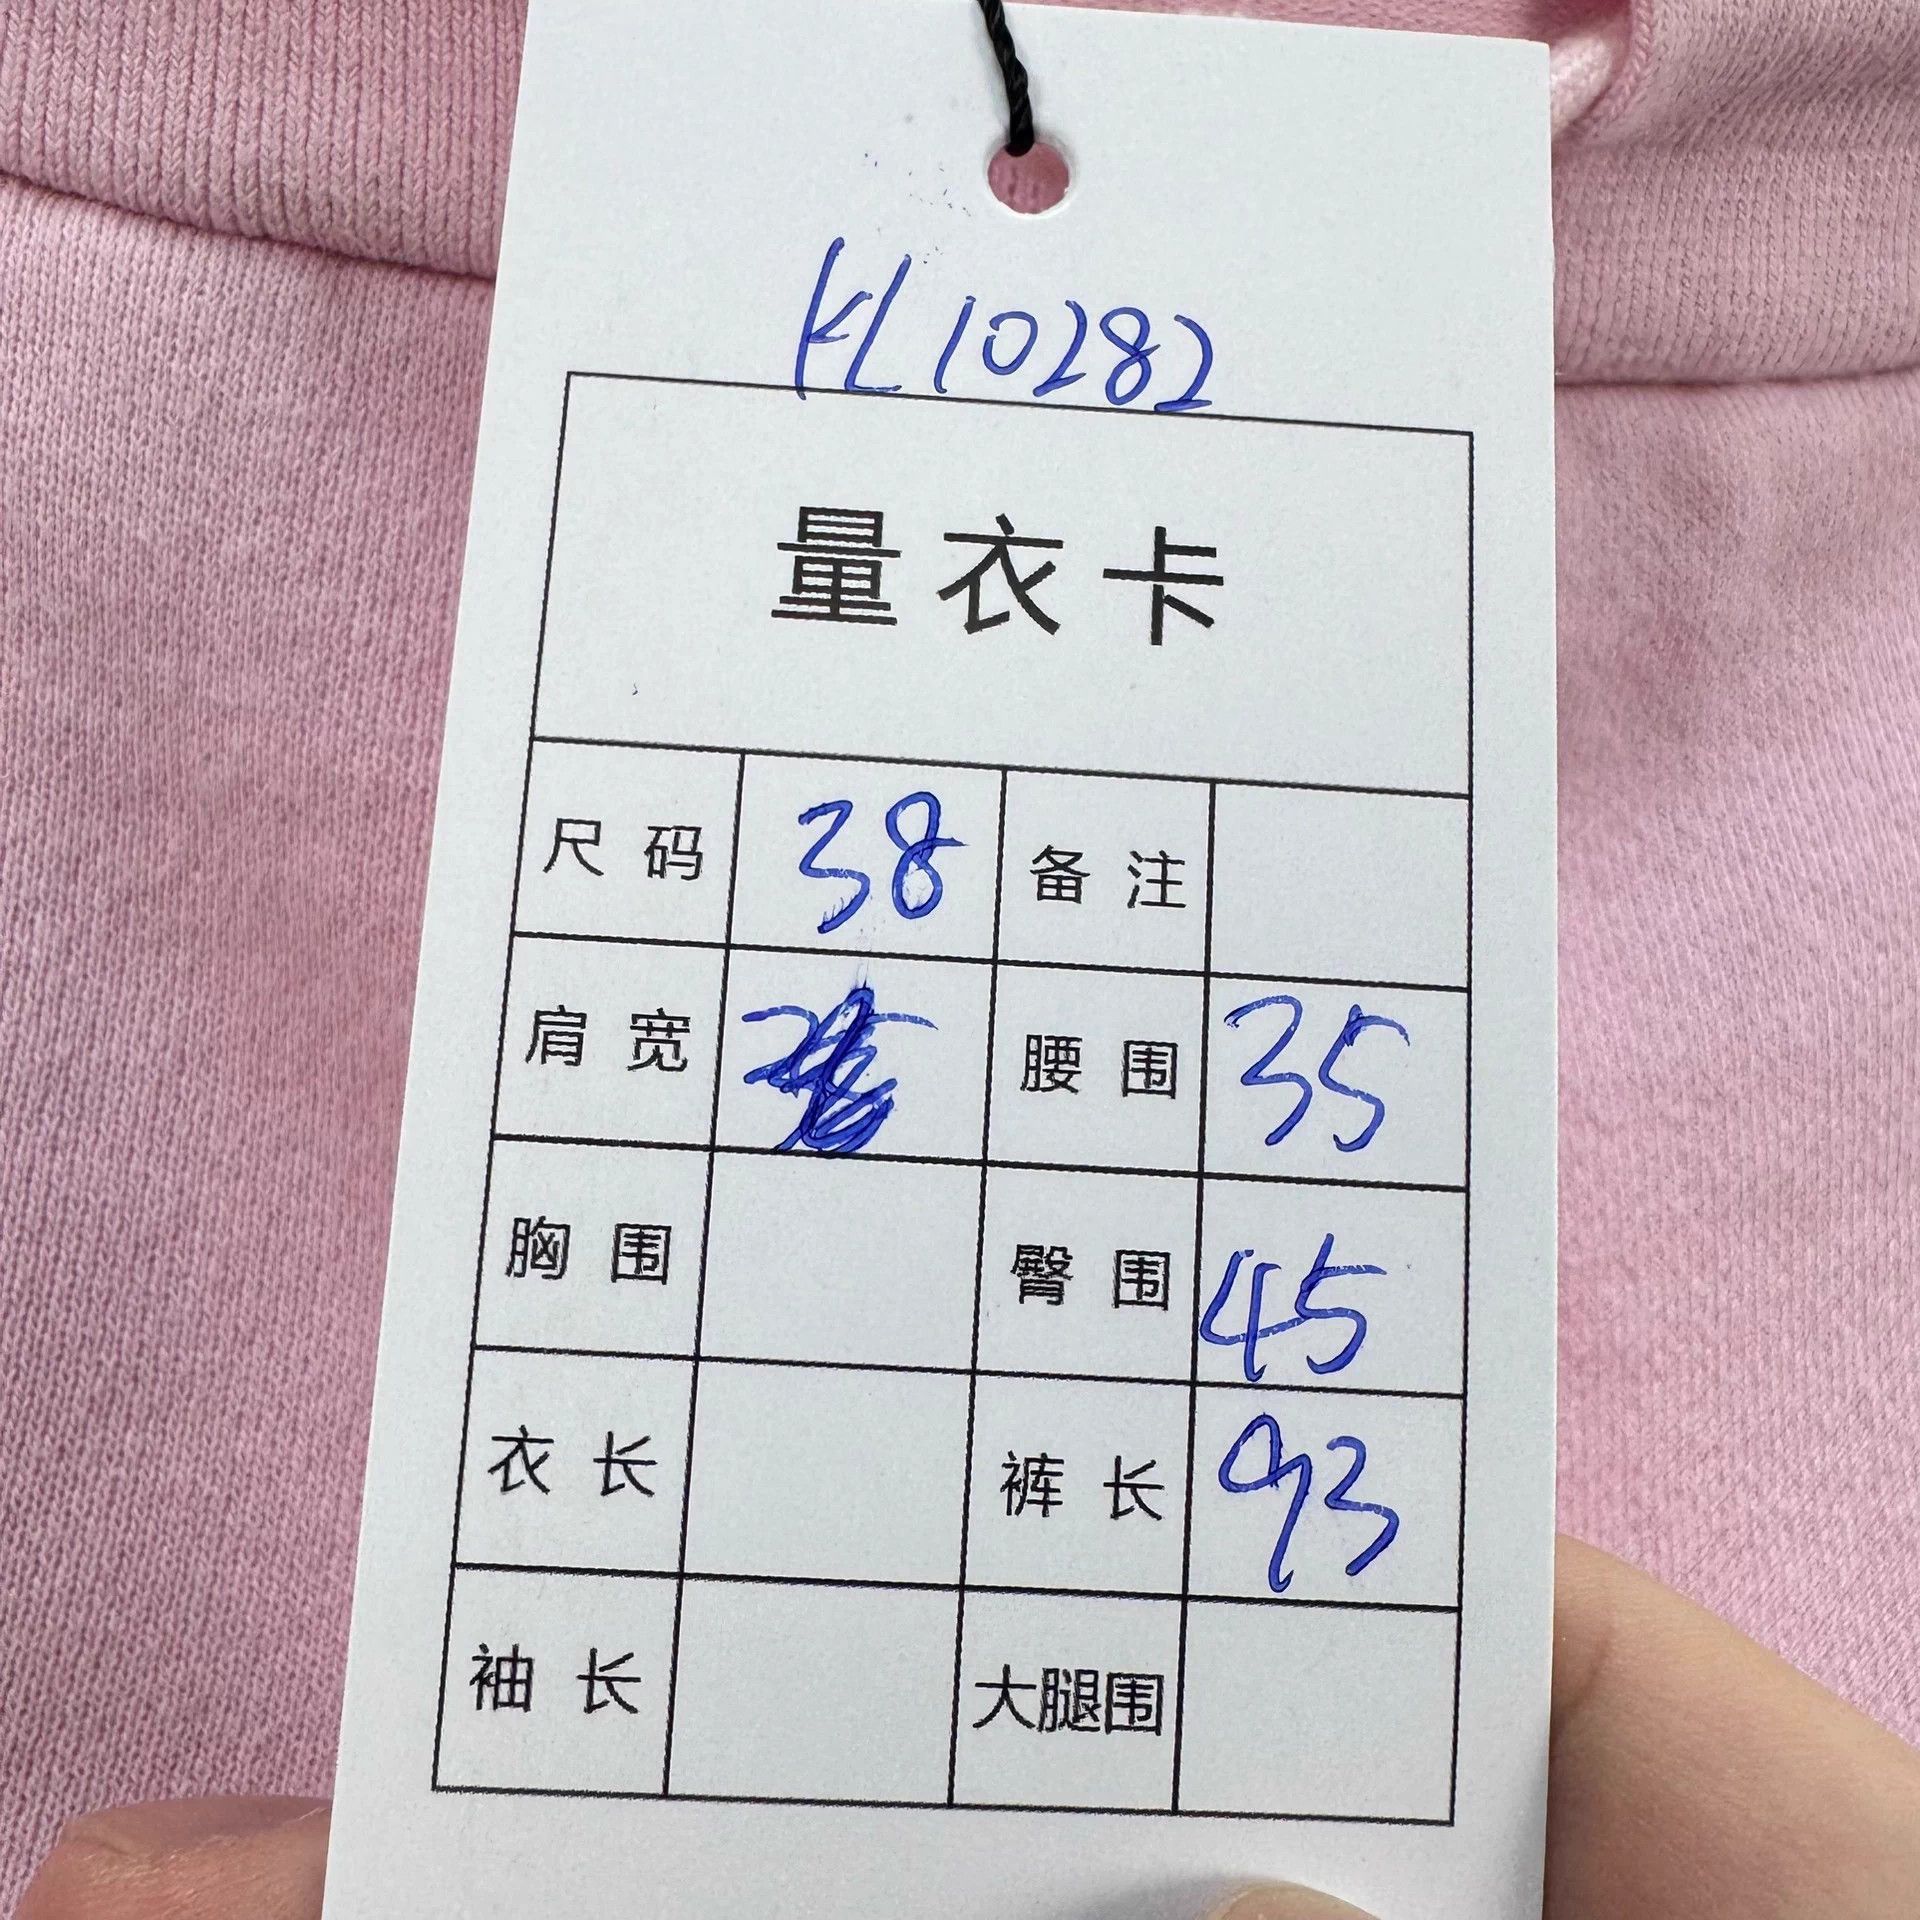 KL10282
量衣卡
尺码 38 备注
肩宽 腰围 35
胸围 臀围 45
衣长 裤长 93
袖长 大腿围